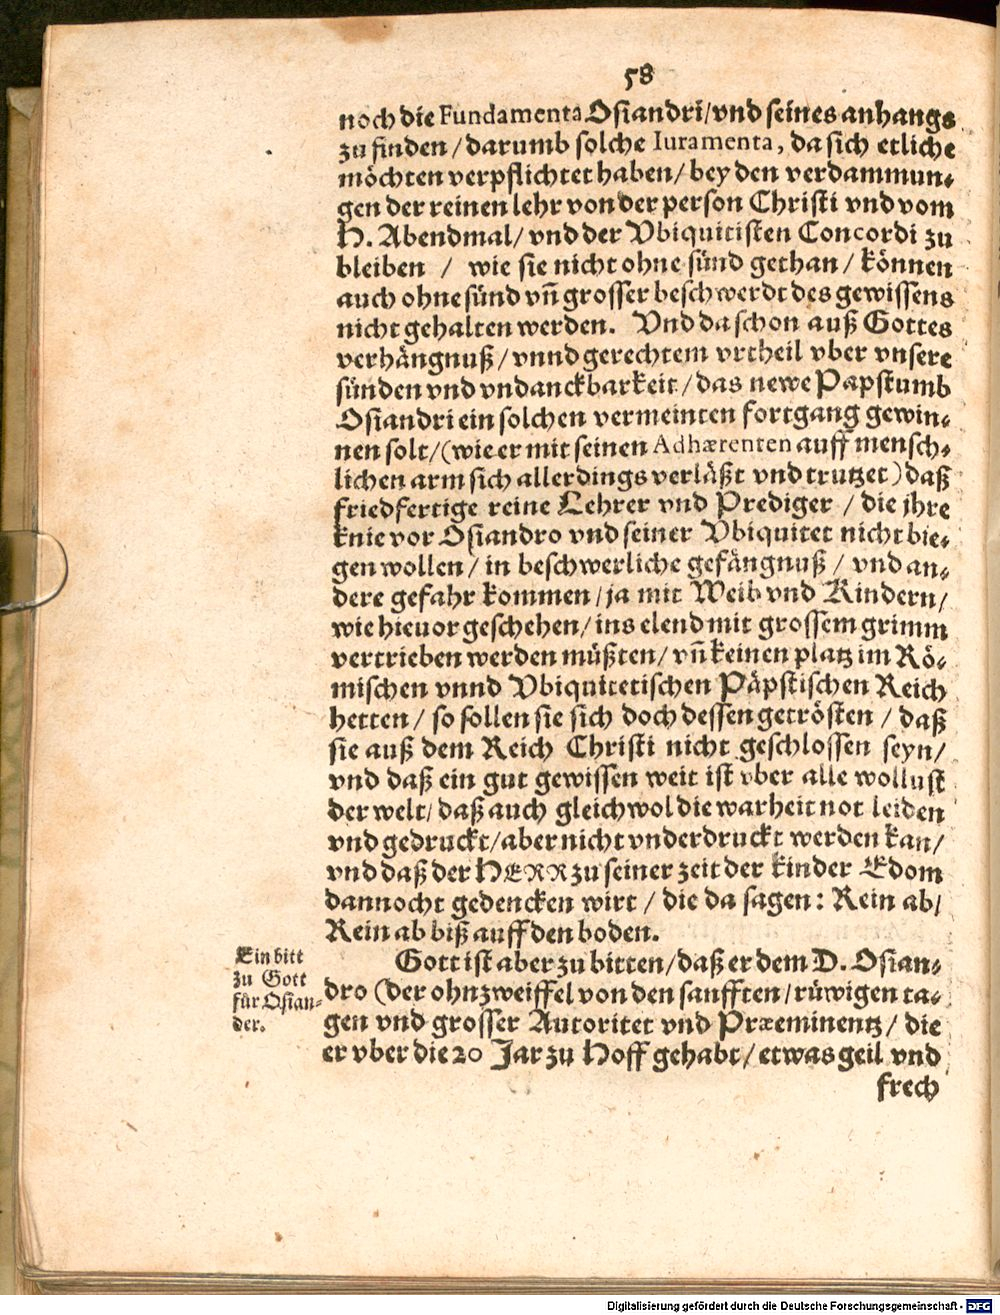 58
noch die Fundamenta Osiandri/vnd seines anhangs
zu finden/darumb solche Iuramenta, da sich etliche
möchten verpflichtet haben/bey den verdammun-
gen der reinen lehr von der person Christi vnd vom
H. Abendmal/vnd der Vbiquitisten Concordi zu
bleiben / wie sie nicht ohne sünd gethan/können
auch ohne sünd vñ grosser beschwerdt des gewissens
nicht gehalten werden. Vnd da schon auß Gottes
verhängnuß/vnnd gerechtem vrtheil vber vnsere
sünden vnd vndanckbarkeit/das newe Papstumb
Osiandri ein solchen vermeinten fortgang gewin-
nen solt/(wie er mit seinen Adhærenten auff mensch-
lichen arm sich allerdings verläßt vnd trutzet) daß
friedfertige reine Lehrer vnd Prediger/die jhre
knie vor Osiandro vnd seiner Vbiquitet nicht bie-
gen wollen/in beschwerliche gefängnuß/vnd an-
dere gefahr kommen/ja mit Weib vnd Kindern/
wie hieuor geschehen/ins elend mit grossem grimm
vertrieben werden müßten/vñ keinen platz im Rö-
mischen vnnd Vbiquitetischen Päpstischen Reich
hetten/so sollen sie sich doch dessen getrösten/daß
sie auß dem Reich Christi nicht geschlossen seyn/
vnd daß ein gut gewissen weit ist vber alle wollust
der welt/daß auch gleichwol die warheit not leiden
vnd gedruckt/aber nicht vnderdruckt werden kan/
vnd daß der HERR zu seiner zeit der kinder Edom
dannocht gedencken wirt/die da sagen: Rein ab/
Rein ab biß auff den boden.
Ein bitt
zu Gott
für Osian-
der.
Gott ist aber zu bitten/daß er dem D. Osian-
dro (der ohnzweiffel von den sanfften/rüwigen ta-
gen vnd grosser Autoritet vnd Præeminentz/die
er vber die 20 Jar zu Hoff gehabt/etwas geil vnd
frech
Digitalisierung gefördert durch die Deutsche Forschungsgemeinschaft - DFG